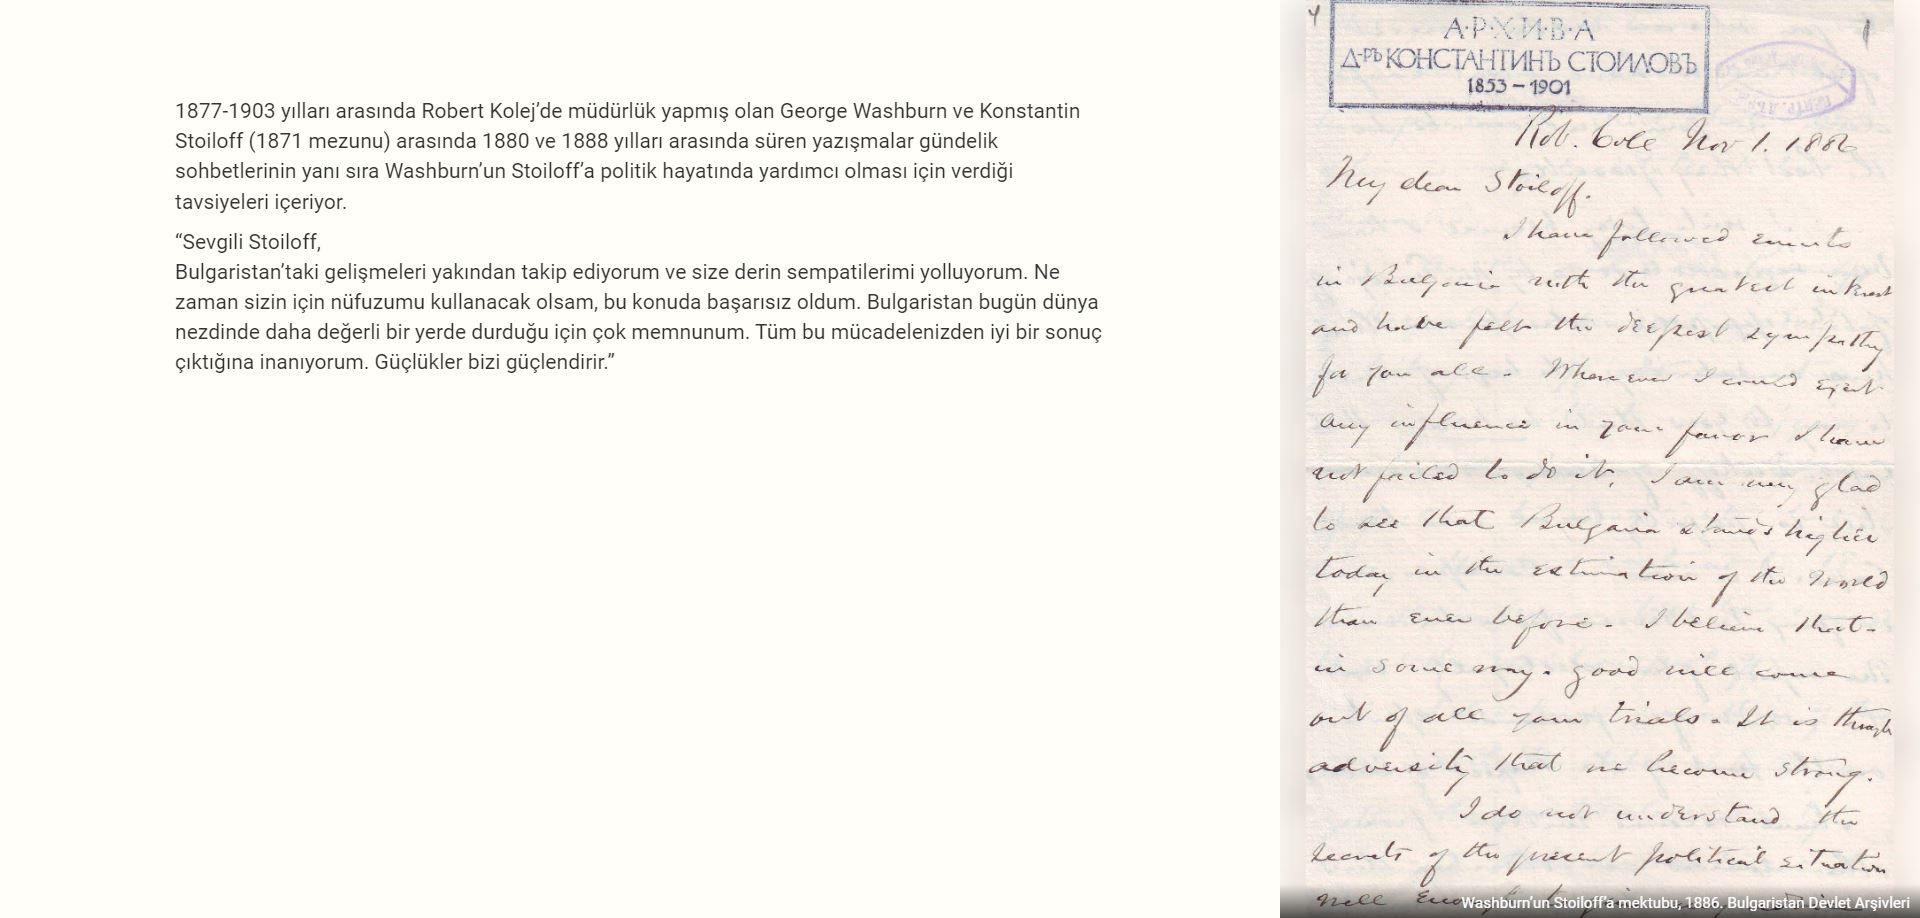 1877-1903 yılları arasında Robert Kolej’de müdürlük yapmış olan George Washburn ve Konstantin
Stoiloff (1871 mezunu) arasında 1880 ve 1888 yılları arasında süren yazışmalar gündelik
sohbetlerinin yanı sıra Washburn’un Stoiloff’a politik hayatında yardımcı olması için verdiği
tavsiyeleri içeriyor.
“Sevgili Stoiloff,
Bulgaristan’taki gelişmeleri yakından takip ediyorum ve size derin sempatilerimi yolluyorum. Ne
zaman sizin için nüfuzumu kullanacak olsam, bu konuda başarısız oldum. Bulgaristan bugün dünya
nezdinde daha değerli bir yerde durduğu için çok memnunum. Tüm bu mücadelenizden iyi bir sonuç
çıktığına inanıyorum. Güçlükler bizi güçlendirir.”
А·Р·Х·И·В·А
Д-РЪ КОНСТАНТИНЪ СТОИЛОВЪ
1853 – 1901
Rob. Cole Nov 1. 1886
My dear Stoiloff.
I have followed events
in Bulgaria with the greatest interest
and have felt the deepest sympathy
for you all. Whenever I could exert
any influence in your favor I have
not failed to do it. I am very glad
to see that Bulgaria stands higher
today in the estimation of the world
than ever before. I believe that
in some way. good will come
out of all your trials. It is through
adversity that we become strong.
I do not understand the
secrets of the present political situation
well
Washburn’un Stoiloff’a mektubu, 1886. Bulgaristan Devlet Arşivleri